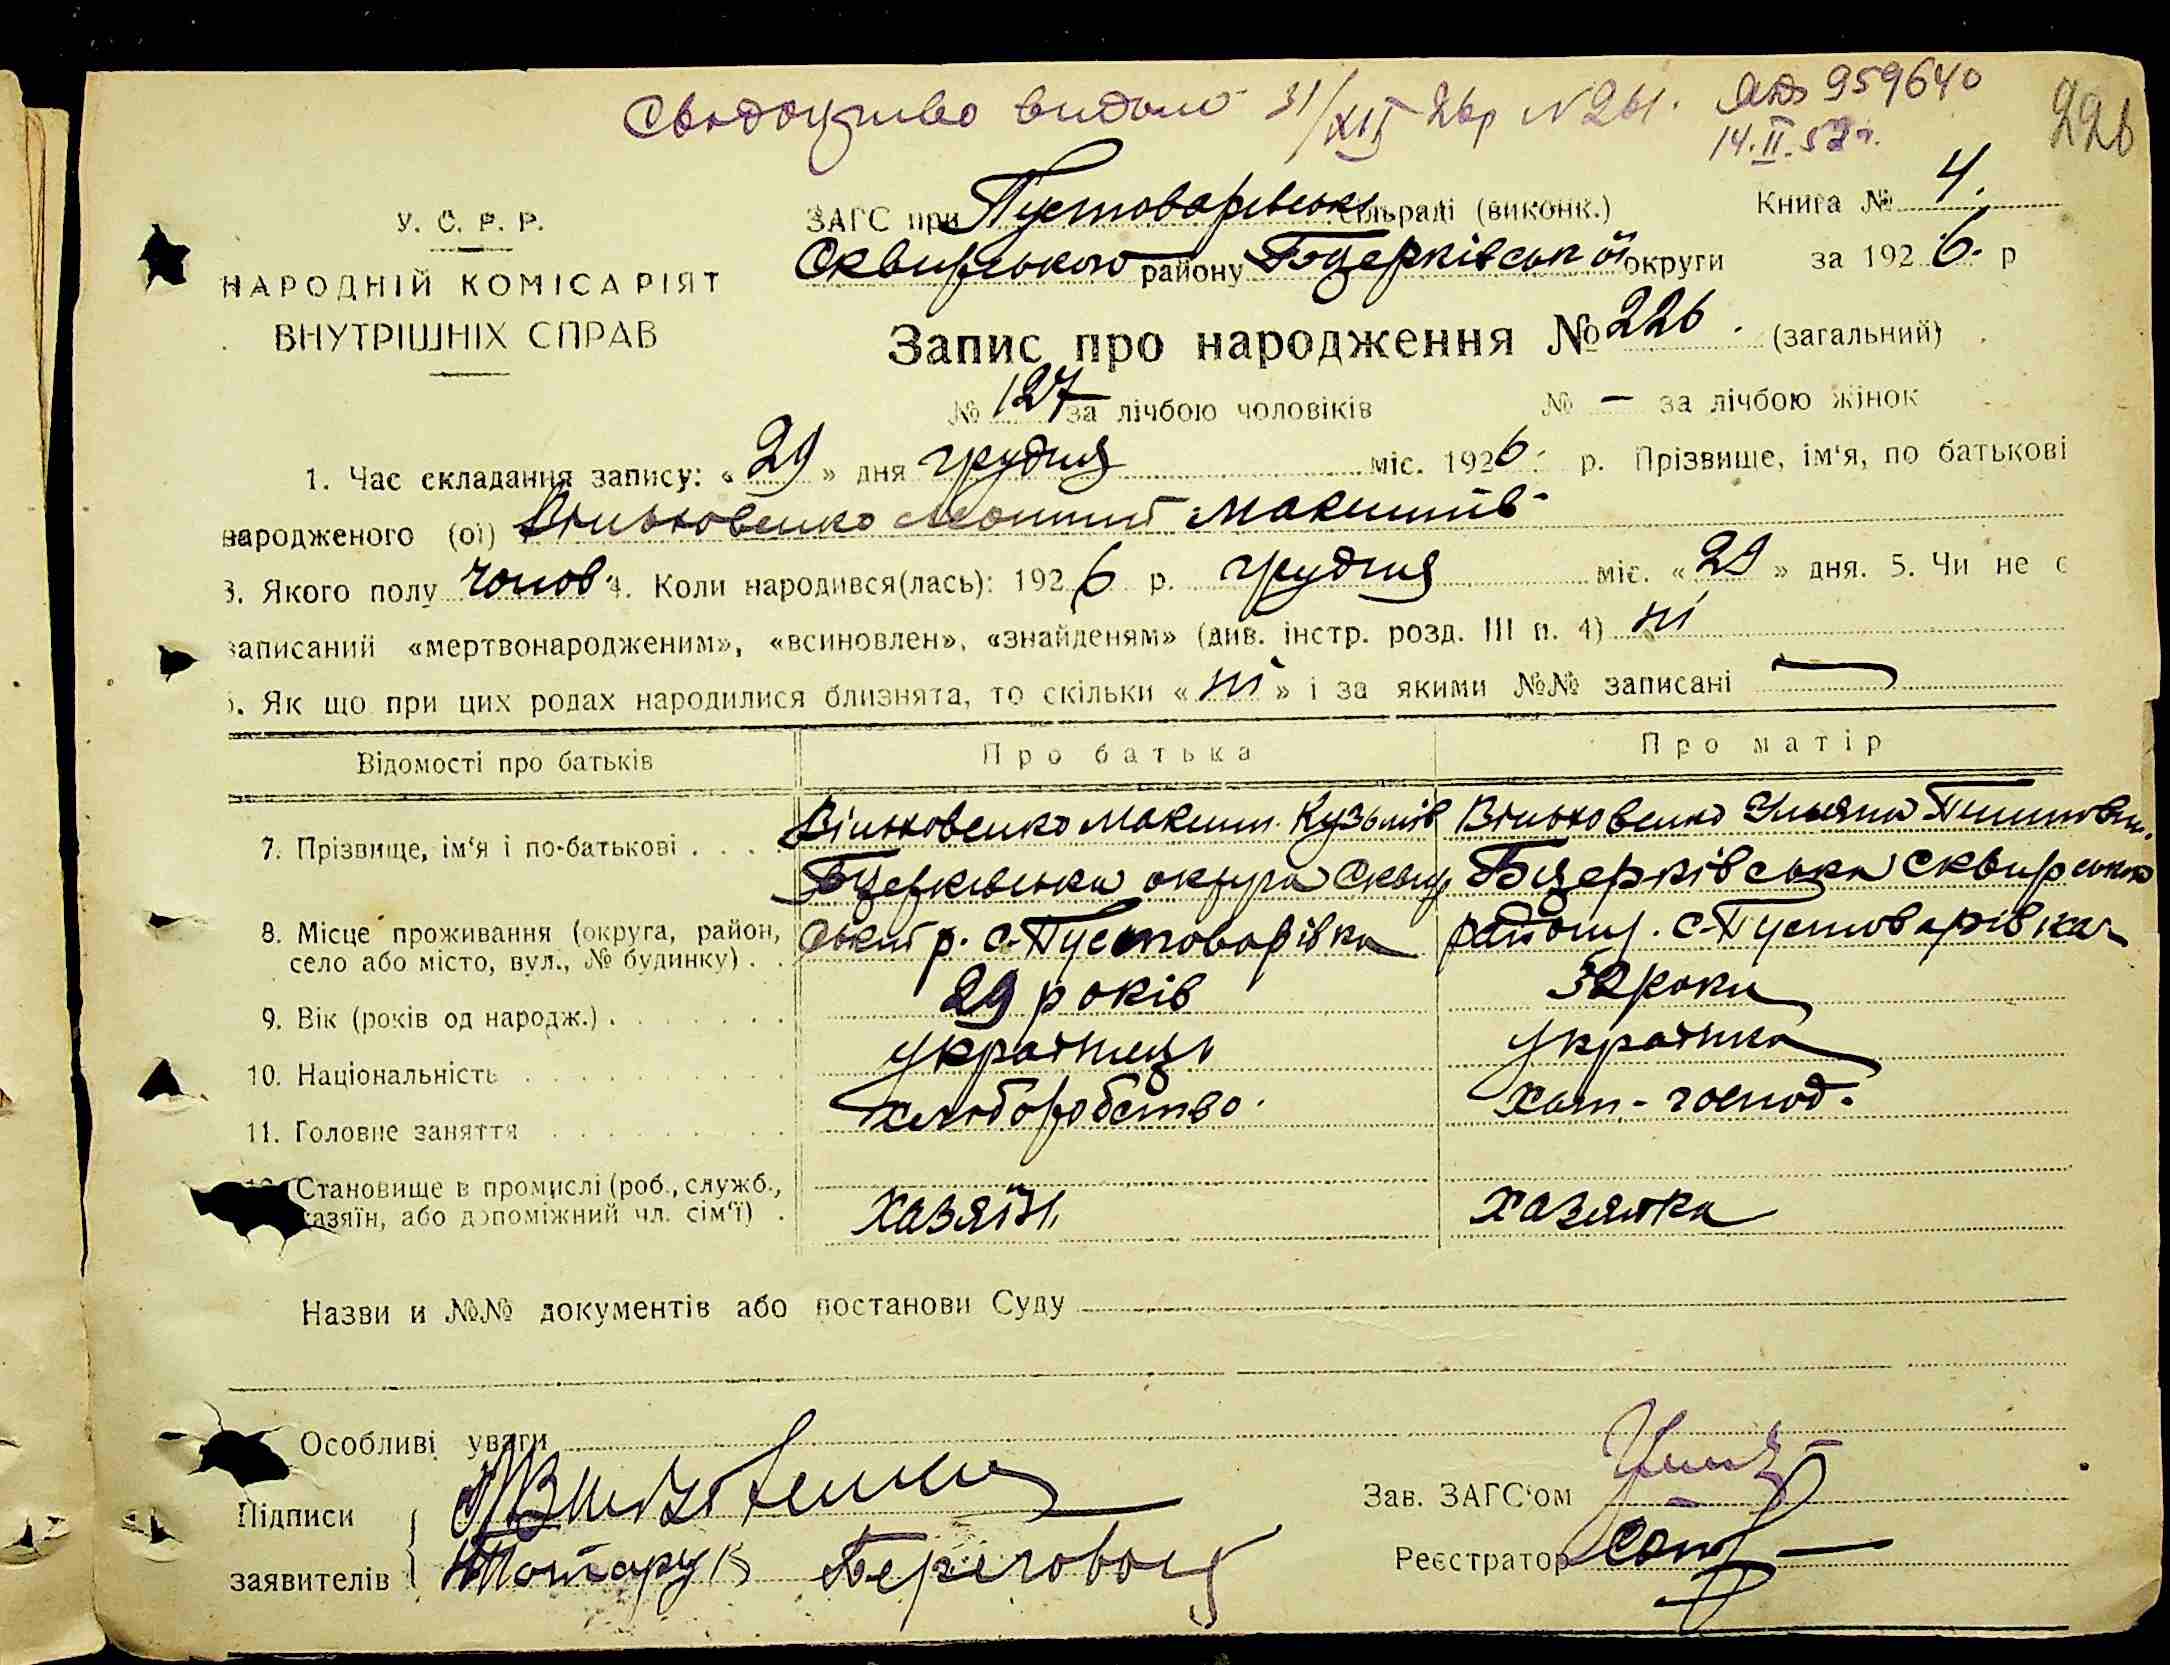 Свидоцтво видано 31/XII 26р N 261. ЯЮ 959640
14.II.52г.
226
ЗАГС при Пустоварівські сільраді (виконк.) Книга № 4.
У. С. Р. Р.
Сквирського району Б/церківської округи за 1926. р
НАРОДНІЙ КОМІСАРІЯТ
ВНУТРІШНІХ СПРАВ
Запис про народження № 226. (загальний)
№ 127 за лічбою чоловіків № — за лічбою жінок
1. Час складання запису: « 29 » дня грудня міс. 1926. р. Прізвище, ім'я, по батькові
народженого (ої) Вільховенко Леонтій Максимів
3. Якого полу чолов. 4. Коли народився(лась): 1926 р. грудня міс. « 29 » дня. 5. Чи не є
записаний «мертвонародженим», «всиновлен», «знайденям» (див. інстр. розд. III п. 4) ні
6. Як що при цих родах народилися близнята, то скільки « ні » і за якими №№ записані —
Відомості про батьків Про батька Про матір
7. Прізвище, ім'я і по-батькові . . . . Вільховенко Максим Кузьмів Вільховенко Уляна
8. Місце проживання (округа, район, село або місто, вул., № будинку) . . Б/церківська округа Сквир Б/церківська Сквирського
ський р. с. Пустоварівка району. с. Пустоварівка
9. Вік (років од народж.) . . . . . . . 29 років 32 роки
10. Національність . . . . . . . . . . українець українка
11. Головне заняття . . . . . . . . . хліборобство. хат-господ.
12. Становище в промислі (роб., служб.,
хазяїн, або допоміжний чл. сім'ї) . хазяїн. хазяйка
Назви и №№ документів або постанови Суду
Особливі уваги
Підписи Вільховенко Зав. ЗАГС'ом
заявителів Береговой Реєстратор